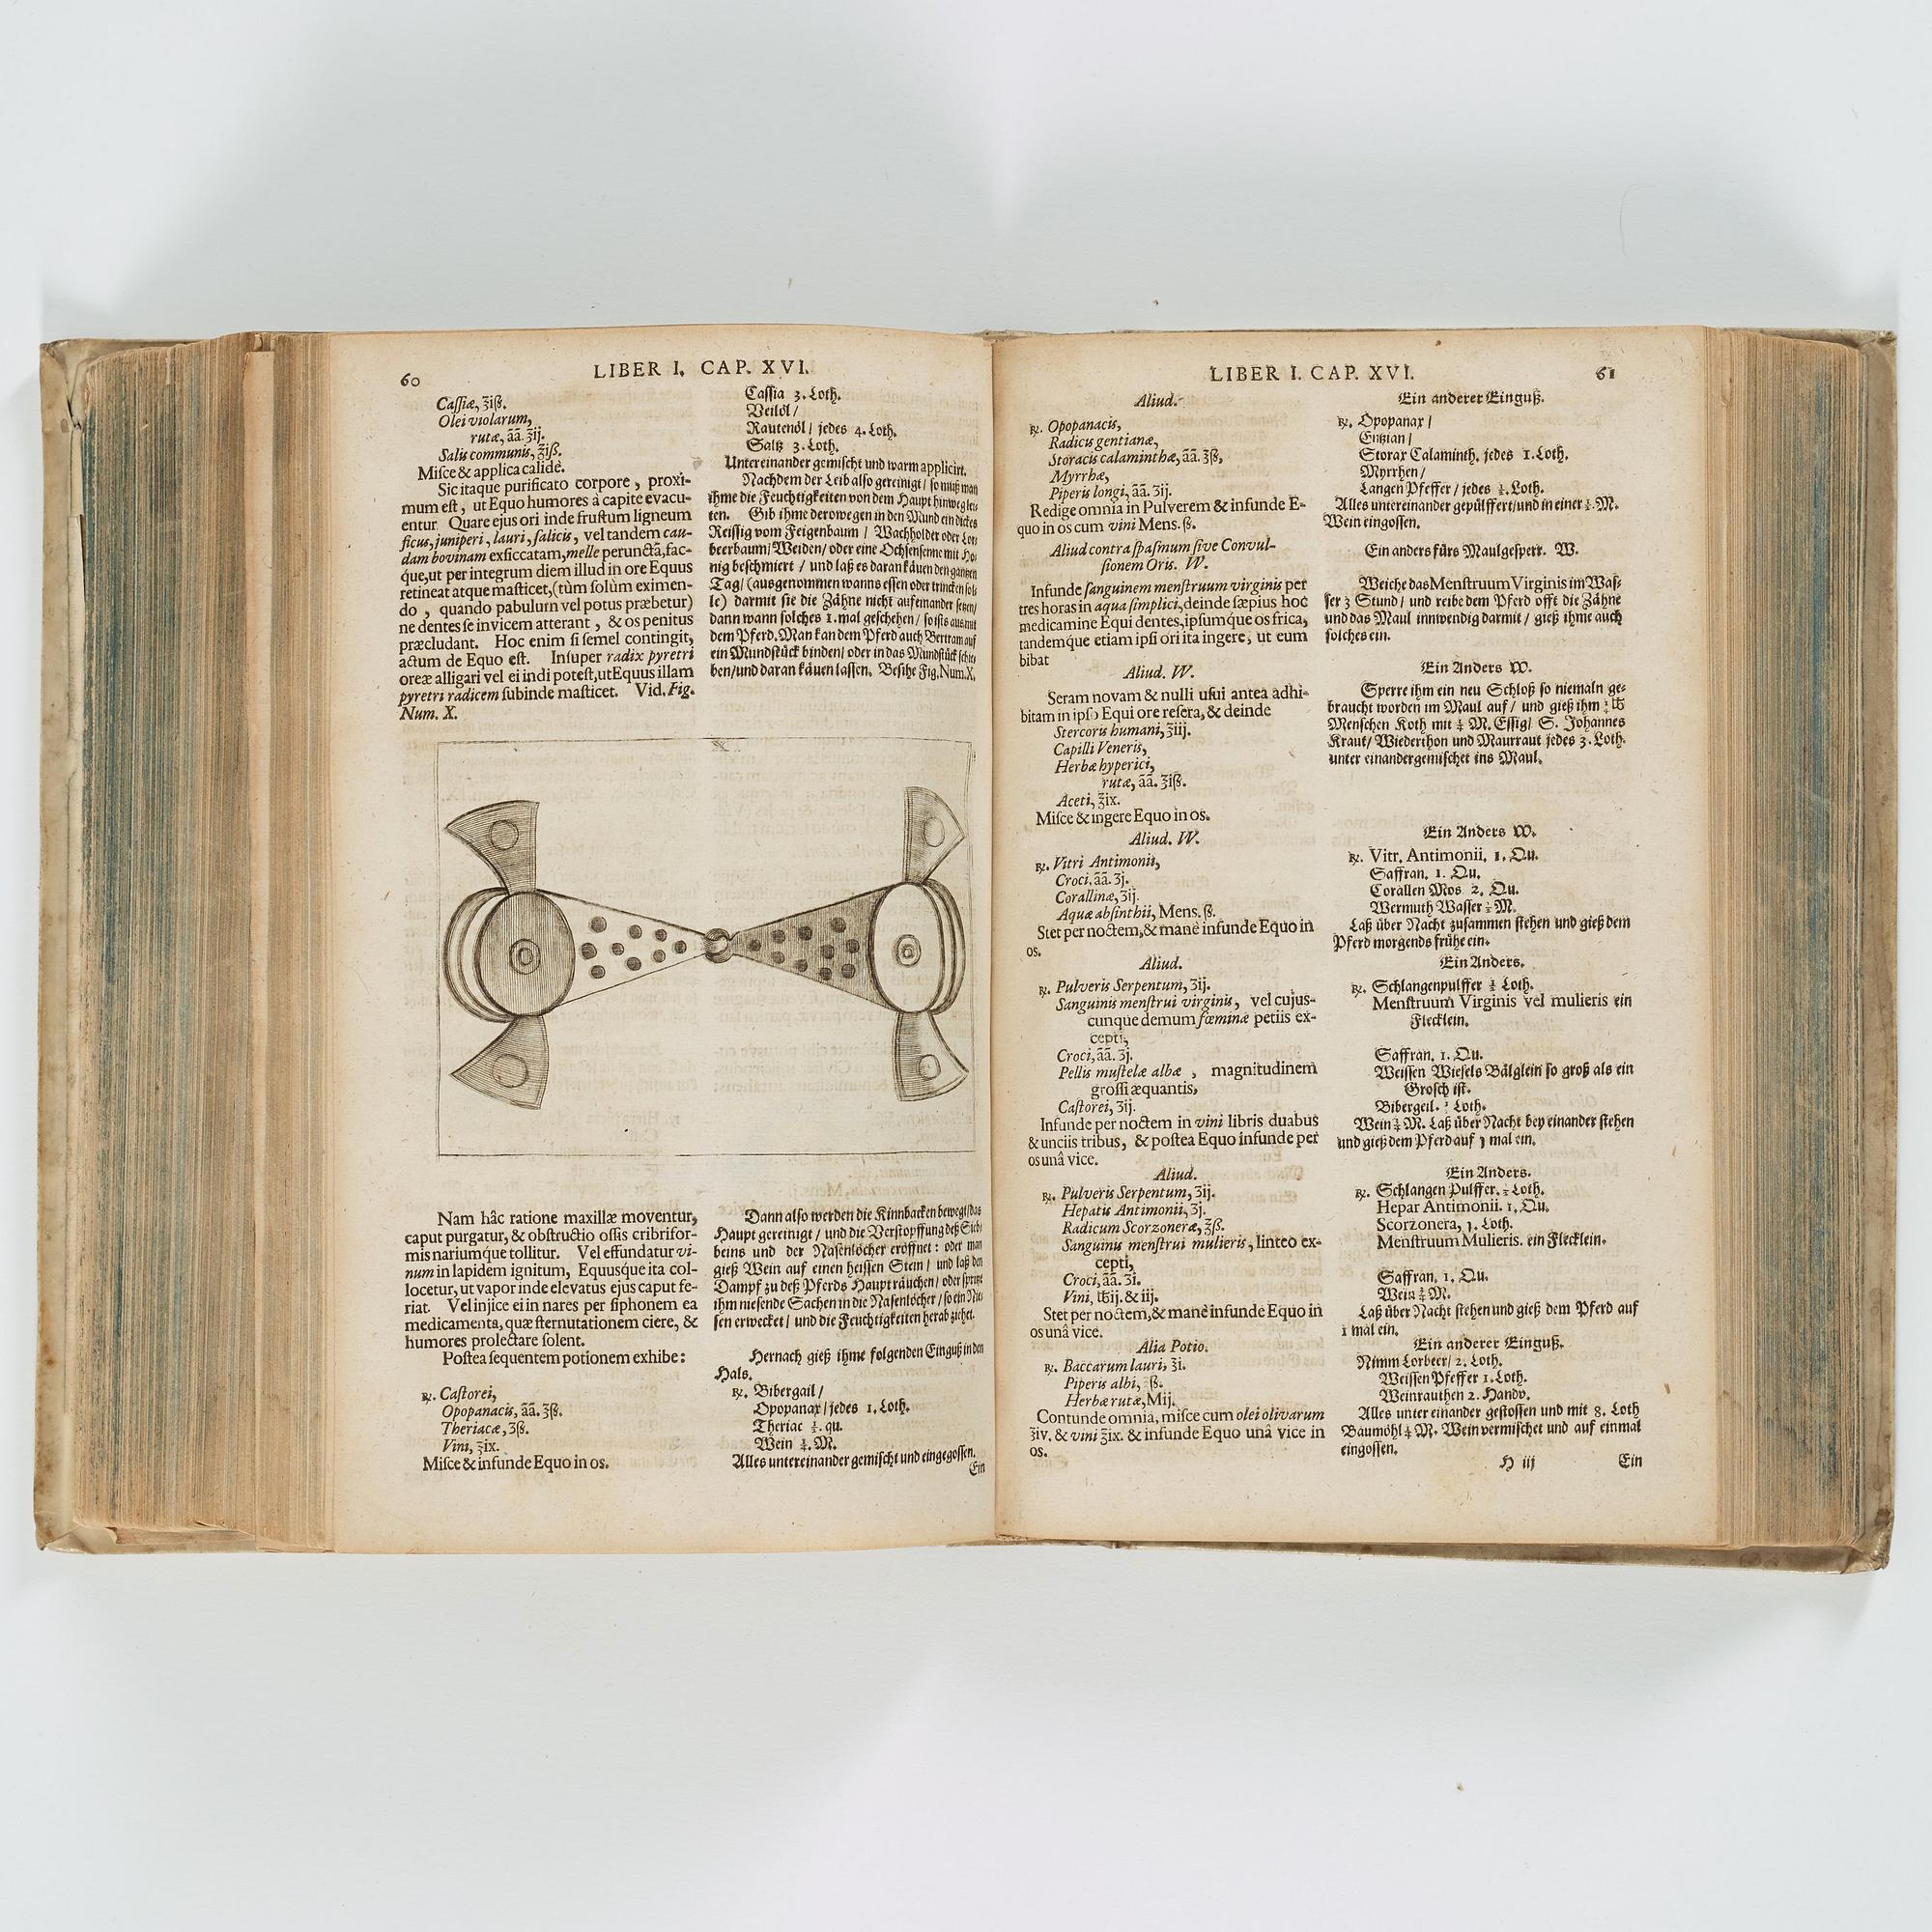 60
LIBER I. CAP. XVI.
Caſſiæ, ℥iß.
Olei violarum,
rutæ, ãã. ℥ij.
Salis communis, ℥iß.
Miſce & applica calidè.
Sic itaque purificato corpore, proxi-
mum eſt, ut Equo humores à capite evacu-
entur. Quare ejus ori inde fruſtum ligneum
ficus, juniperi, lauri, ſalicis, vel tandem cau-
dam bovinam exſiccatam, melle perunctã, fac-
que, ut per integrum diem illud in ore Equus
retineat atque maſticet, (tùm ſolùm eximen-
do, quando pabulum vel potus præbetur)
ne dentes ſe invicem atterant, & os penitus
præcludant. Hoc enim ſi ſemel contingit,
actum de Equo eſt. Inſuper radix pyretri
oreæ alligari vel ei indi poteſt, ut Equus illam
pyretri radicem ſubinde maſticet. Vid. Fig.
Num. X.
Nam hâc ratione maxillæ moventur,
caput purgatur, & obſtructio oſſis cribrifor-
mis nariumque tollitur. Vel effundatur vi-
num in lapidem ignitum, Equusque ita col-
locetur, ut vapor inde elevatus ejus caput fe-
riat. Vel injice ei in nares per ſiphonem ea
medicamenta, quæ ſternutationem ciere, &
humores prolectare ſolent.
Poſtea ſequentem potionem exhibe:
℞. Caſtorei,
Opopanacis, ãã. ℥ß.
Theriacæ, ʒß.
Vini, ℥ix.
Miſce & infunde Equo in os.
Caſſia 3. Loth.
Veilöl /
Rautenöl / jedes 4. Loth.
Saltz 3. Loth.
Untereinander gemiſcht und warm applicirt.
Nachdem der Leib alſo gereinigt / ſo muß man
ihme die Feuchtigkeiten von dem Haupt hinweg lei-
ten. Gib ihme derowegen in den Mund ein dickes
Reiſſig vom Feigenbaum / Wachholder oder Lor-
beerbaum / Weiden / oder eine Ochſenſenne mit Ho-
nig beſchmiert / und laß es daran käuen den gantzen
Tag / (ausgenommen wanns eſſen oder trincken ſol-
le) darmit ſie die Zähne nicht aufeinander ſetzen /
dann wann ſolches 1. mal geſchehen / ſo iſts aus mit
dem Pferd. Man kan dem Pferd auch Bertram auf
ein Mundſtück binden / oder in das Mundſtück ſchie-
ben / und daran käuen laſſen. Beſihe Fig. Num. X.
X
Dann alſo werden die Kinnbacken bewegt / das
Haupt gereinigt / und die Verſtopffung deß Sieb-
beins und der Naſenlöcher eröffnet: oder man
gieß Wein auf einen heiſſen Stein / und laß den
Dampf zu deß Pferds Haupt räuchen / oder ſpritz
ihm nieſende Sachen in die Naſenlöcher / ſo ein Nie-
ſen erwecket / und die Feuchtigkeiten herab ziehet.
Hernach gieß ihme folgenden Einguß in den
Hals.
℞. Bibergail /
Opopanax / jedes 1. Loth.
Theriac ½. qu.
Wein ¼. M.
Alles untereinander gemiſcht und eingegoſſen.
Ein
LIBER I. CAP. XVI.
61
Aliud.
℞. Opopanacis,
Radicis gentianæ,
Storacis calaminthæ, ãã. ℥ß,
Myrrhæ,
Piperis longi, ãã. ʒij.
Redige omnia in Pulverem & infunde E-
quo in os cum vini Mens. ß.
Aliud contra ſpaſmum ſive Convul-
ſionem Oris. W.
Infunde ſanguinem menſtruum virginis per
tres horas in aqua ſimplici, deinde ſæpius hoc
medicamine Equi dentes, ipſumque os frica,
tandemque etiam ipſi ori ita ingere, ut eum
bibat
Aliud. W.
Seram novam & nulli uſui antea adhi-
bitam in ipſo Equi ore reſera, & deinde
Stercoris humani, ℥iij.
Capilli Veneris,
Herbæ hyperici,
rutæ, ãã. ℥iß.
Aceti, ℥ix.
Miſce & ingere Equo in os.
Aliud. W.
℞. Vitri Antimonii,
Croci, ãã. ʒj.
Corallinæ, ʒij.
Aquæ abſinthii, Mens. ß.
Stet per noctem, & manè infunde Equo in
os.
Aliud.
℞. Pulveris Serpentum, ʒij.
Sanguinis menſtrui virginis, vel cujus-
cunque demum fœminæ petiis ex-
cepti,
Croci, ãã. ʒj.
Pellis muſtelæ albæ, magnitudinem
groſſi æquantis,
Caſtorei, ʒij.
Infunde per noctem in vini libris duabus
& unciis tribus, & poſtea Equo infunde per
os unâ vice.
Aliud.
℞. Pulveris Serpentum, ʒij.
Hepatis Antimonii, ʒj.
Radicum Scorzoneræ, ℥ß.
Sanguinis menſtrui mulieris, linteo ex-
cepti,
Croci, ãã. ʒi.
Vini, ℔ij. & iij.
Stet per noctem, & manè infunde Equo in
os unâ vice.
Alia Potio.
℞. Baccarum lauri, ℥i.
Piperis albi, ℥ß.
Herbæ rutæ, Mij.
Contunde omnia, miſce cum olei olivarum
℥iv. & vini ℥ix. & infunde Equo unâ vice in
os.
Ein anderer Einguß.
℞. Opopanax /
Entzian /
Storax Calaminth. jedes 1. Loth.
Myrrhen /
Langen Pfeffer / jedes ½. Loth.
Alles untereinander gepülffert / und in einer ½. M.
Wein eingoſſen.
Ein anders fürs Maulgeſperr. W.
Weiche das Menſtruum Virginis im Waſ-
ſer 3 Stund / und reibe dem Pferd offt die Zähne
und das Maul innwendig darmit / gieß ihme auch
ſolches ein.
Ein Anders W.
Sperre ihm ein neu Schloß ſo niemaln ge-
braucht worden im Maul auf / und gieß ihm ¼ ℔
Menſchen Koth mit ¼ M. Eſſig / S. Johannes
Kraut / Wiederthon und Maurraut jedes 3. Loth.
unter einander gemiſchet ins Maul.
Ein Anders W.
℞. Vitr. Antimonii, 1. Qu.
Saffran. 1. Qu.
Corallen Mos 2. Qu.
Wermuth Waſſer ½ M.
Laß über Nacht zuſammen ſtehen und gieß dem
Pferd morgends frühe ein.
Ein Anders.
℞. Schlangenpulffer ½ Loth.
Menſtruum Virginis vel mulieris ein
Flecklein.
Saffran. 1. Qu.
Weiſſen Wieſels Bälglein ſo groß als ein
Groſch iſt.
Bibergeil. ½ Loth.
Wein ¾ M. Laß über Nacht bey einander ſtehen
und gieß dem Pferd auf 1 mal ein.
Ein Anders.
℞. Schlangen Pulffer. ½ Loth.
Hepar Antimonii. 1. Qu.
Scorzonera, 1. Loth.
Menſtruum Mulieris. ein Flecklein.
Saffran. 1. Qu.
Wein ¾ M.
Laß über Nacht ſtehen und gieß dem Pferd auf
1 mal ein.
Ein anderer Einguß.
Nimm Lorbeer / 2. Loth.
Weiſſen Pfeffer 1. Loth.
Weinrauthen 2. Handv.
Alles unter einander geſtoſſen und mit 8. Loth
Baumöhl ¼ M. Wein vermiſchet und auf einmal
eingoſſen.
H iij
Ein